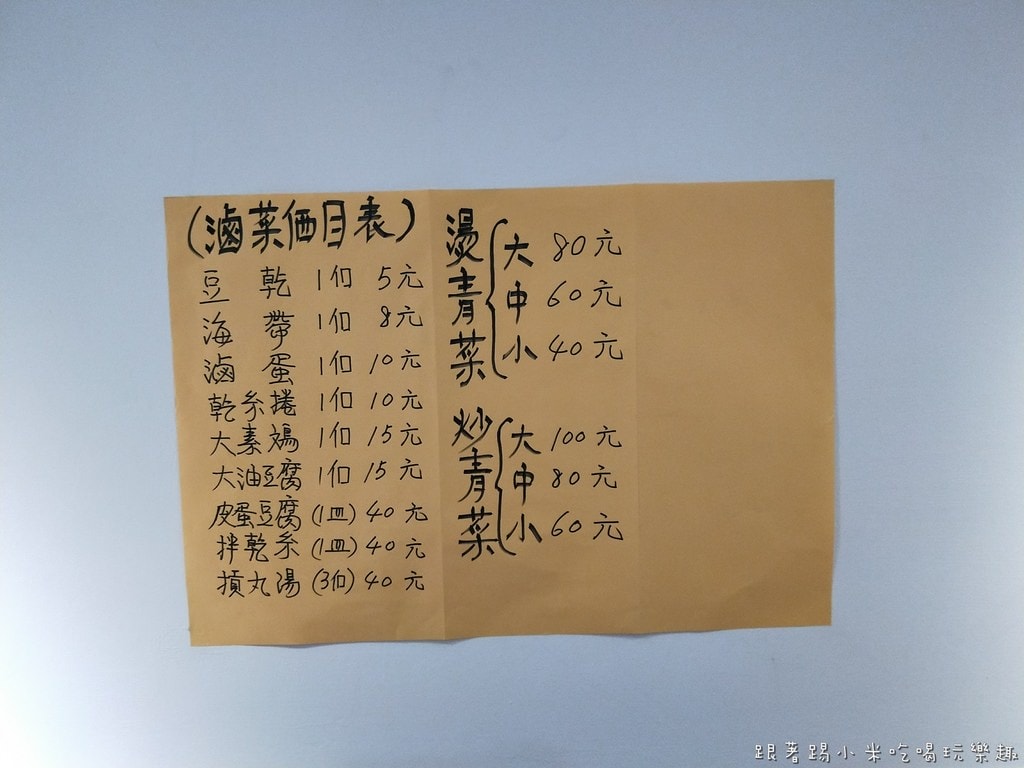 (滷菜価目表)
豆乾 1個 5元
海帶 1個 8元
滷蛋 1個 10元
乾糸捲 1個 10元
大素鷄 1個 15元
大油豆腐 1個 15元
皮蛋豆腐 (1皿) 40元
拌乾糸 (1皿) 40元
摃丸湯 (3個) 40元
燙青菜
大 80元
中 60元
小 40元
炒青菜
大 100元
中 80元
小 60元
跟著踢小米吃喝玩樂趣